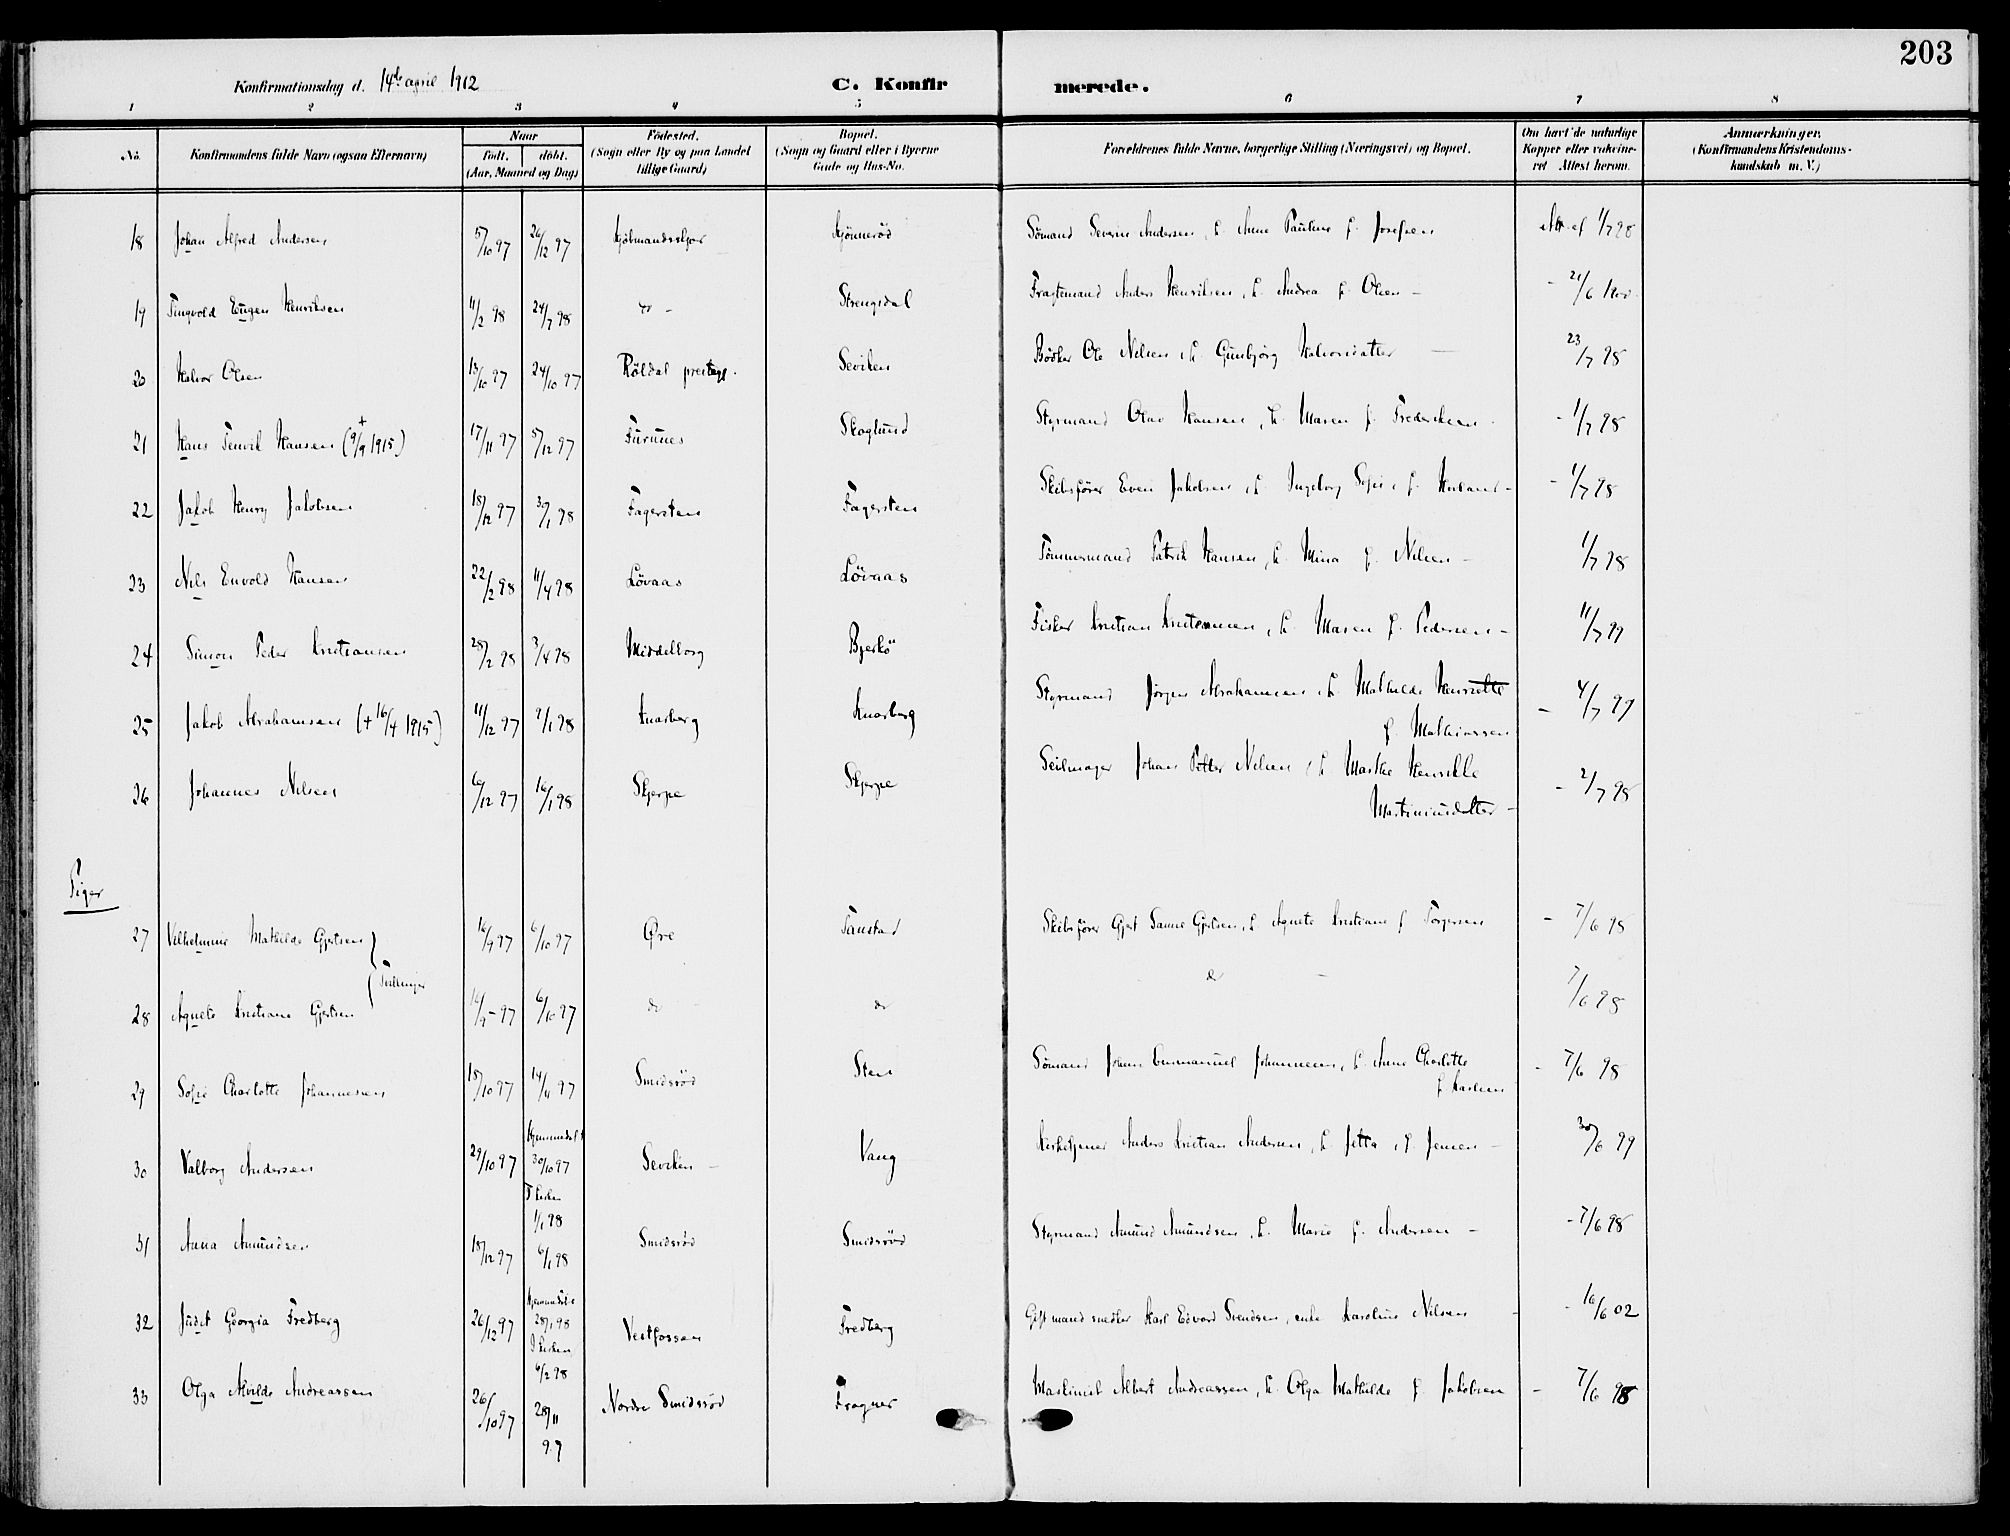 203
Konfirmationsdag d. 14de april 1912 C. Konfirmerede.
1 2 3 4 5 6 7 8
No. Konfirmandens fulde Navn (ogsaa Efternavn) Naar født. døbt. (Aar, Maaned og Dag) Fødested. (Sogn eller By og paa Landet tillige Gaard) Bopæl. (Sogn og Gaard eller i Byerne Gade og Hus-No. Forældrenes fulde Navne, borgerlige Stilling (Næringsvei) og Bopæl. Om havt de naturlige Kopper eller vakcineret Attest herom. Anmærkninger. (Konfirmandens Kristendomskundskab m. V.)
18 Johan Alfred Andersen 5/10 97 26/12 97 Kjøbmandsskjær Kjønnerød Sømand Severin Andersen, h. Anne Pauline f. Josefsen Att. af 1/7 98
19 Tingvold Eugen Henriksen 11/2 98 24/7 98 do - Strengsdal Fragtemand Anders Henriksen, h. Andrea f. Olsen - - 21/6 1900
20 Halvor Olsen 13/10 97 24/10 97 Röldal prestegj. Seviken Bødker Ole Nilsen, h. Gunbjørg Halvorsdatter - 23/7 98
21 Hans Tenvik Hansen († 9/9 1915) 17/11 97 5/12 97 Furunes Skoglund Styrmand Olav Hansen, h. Maren f. Frederiksen - - 1/7 98
22 Jakob Henry Jakobsen 18/12 97 30/1 98 Fagersten Fagersten Skibsfører Even Jakobsen, h. Ingeborg Sofie, f. - - 1/7 98
23 Nils Envold Hansen 22/2 98 11/4 98 Lövaas Lövaas Tømmermand Patrik Hansen, h. Mina f. Nilsen - 1/7 98
24 Simon Peder Kristiansen 28/2 98 3/4 98 Middelborg Bjerkö Fisker Kristian Kristiansen, h. Maren f. Pedersen - 11/7 99
25 Jakob Abrahamsen († 16/4 1915) 11/12 97 9/1 98 Knarberg Knarberg Styrmand Jørgen Abrahamsen, h. Mathilde Henriette
f. Mathiassen - 4/7 99
26 Johannes Nilsen 6/12 97 16/1 98 Skjerpe Skjerpe Seilmager Johan Petter Nilsen, h. Marthe Henrikke
Martiniusdatter - - 2/7 98
Piger
27 Vilhelmine Mathilde Gjertsen 16/9 97 6/10 97 Øre Fanstad Skibsfører Gjert Sanne Gjertsen, h. Agnete Kristiane f Torgersen - 7/6 98
Tvillinger
28 Agnete Kristiane Gjertsen 16/9 - 97 6/10 97 do - do do - 7/6 98
29 Sofie Charlotte Johannessen 18/10 97 14/11 97 Smidsrød Sten Sømand Johan Emmanuel Johannessen, h. Anne Charlotte
f. Karlsen - 7/6 98
30 Valborg Andersen 29/10 97 Hjemmedøbt 30/10 97 I kirken 1/1 98 Seviken - Vang Kirketjener Anders Kristian Andersen, h. Jetta, f. Jensen - 30/6 99
31 Anna Amundsen 18/12 97 6/1 98 Smidsrød Smidsrød Styrmand Amund Amundsen, h. Marie f. Andersen - - 7/6 98
32 Judit Georgia Fredberg 26/12 97 Hjemmedøbt 28/1 98 I kirken 6/2 98 Vestfossen Fredberg Giftmand snedker Karl Edvard Svendsen, enke Karoline Nilsen - - 16/6 02
33 Olga Alvilde Andreassen 26/10 97 28/11 97 Nordre Smidsrød Fragner Maskinist Albert Andreassen, h. Olga Mathilde f. Jakobsen - 7/6 98